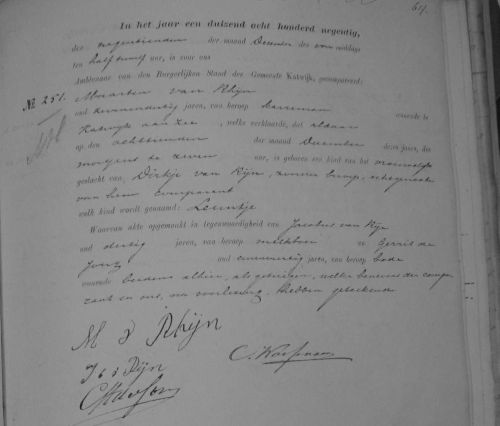 64.
In het jaar een duizend acht honderd negentig,
den negentienden der maand December des voormiddags
ten half twaalf ure, is voor ons
Ambtenaar van den Burgerlijken Stand der Gemeente Katwijk, gecompareerd:
No. 251. Maarten van Rhijn
oud jaren, van beroep zeeman wonende te
Katwijk aan Zee, welke verklaarde, dat aldaar
op den achttienden der maand December dezes jaars, des
morgens te zeven ure, is geboren een kind van het vrouwelijke
geslacht van Dirkje van Rijn, zonder beroep, echtgenoote
van hem comparant
welk kind wordt genaamd: Leentje
Waarvan akte opgemaakt in tegenwoordigheid van Jacobus van Rijn
oud dertig jaren, van beroep en Gerrit de
Jong oud jaren, van beroep bode
wonende beiden alhier, als getuigen, welke benevens den compa-
rant en ons, na voorlezing, hebben geteekend
M v Rhijn
J v Rijn